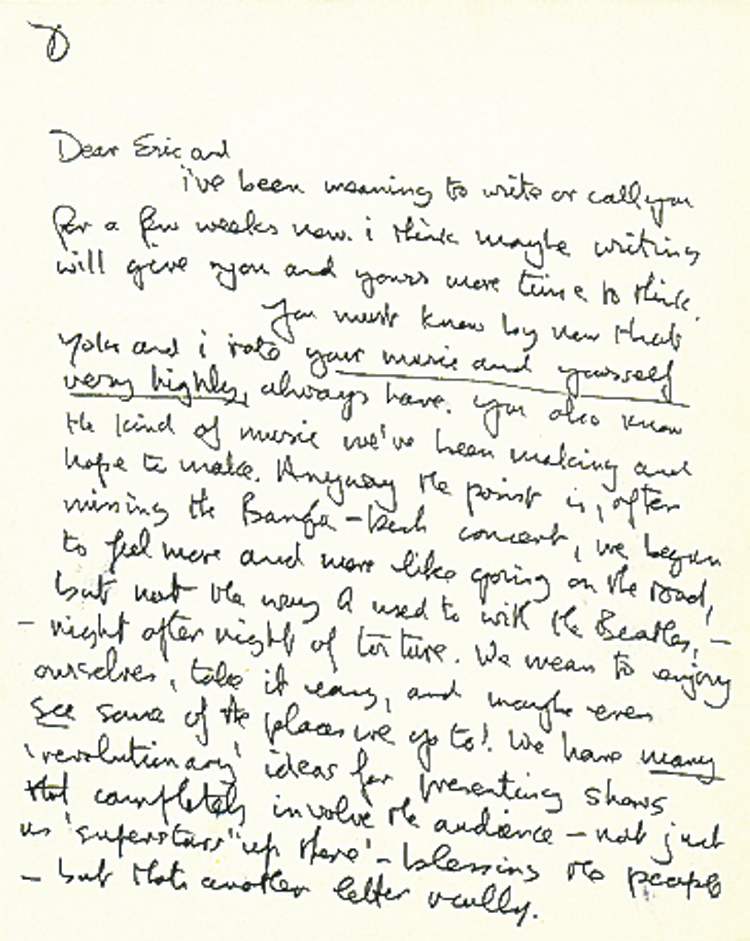 Dear Eric and
i've been meaning to write or call you
for a few weeks now. i think maybe writing
will give you and yours more time to think.
You must know by now that
Yoko and i rate your music and yourself
very highly, always have. You also know
the kind of music we've been making and
hope to make. Anyway the point is, after
missing the Bangla-Desh concert, we began
to feel more and more like going on the road,
but not the way I used to with the Beatles, -
- night after night of torture. We mean to enjoy
ourselves, take it easy, and maybe even
see some of the places we go to! We have many
'revolutionary' ideas for presenting shows
that completely involve the audience - not just
us 'superstars' 'up there' - blessing the people
- but thats another letter really.